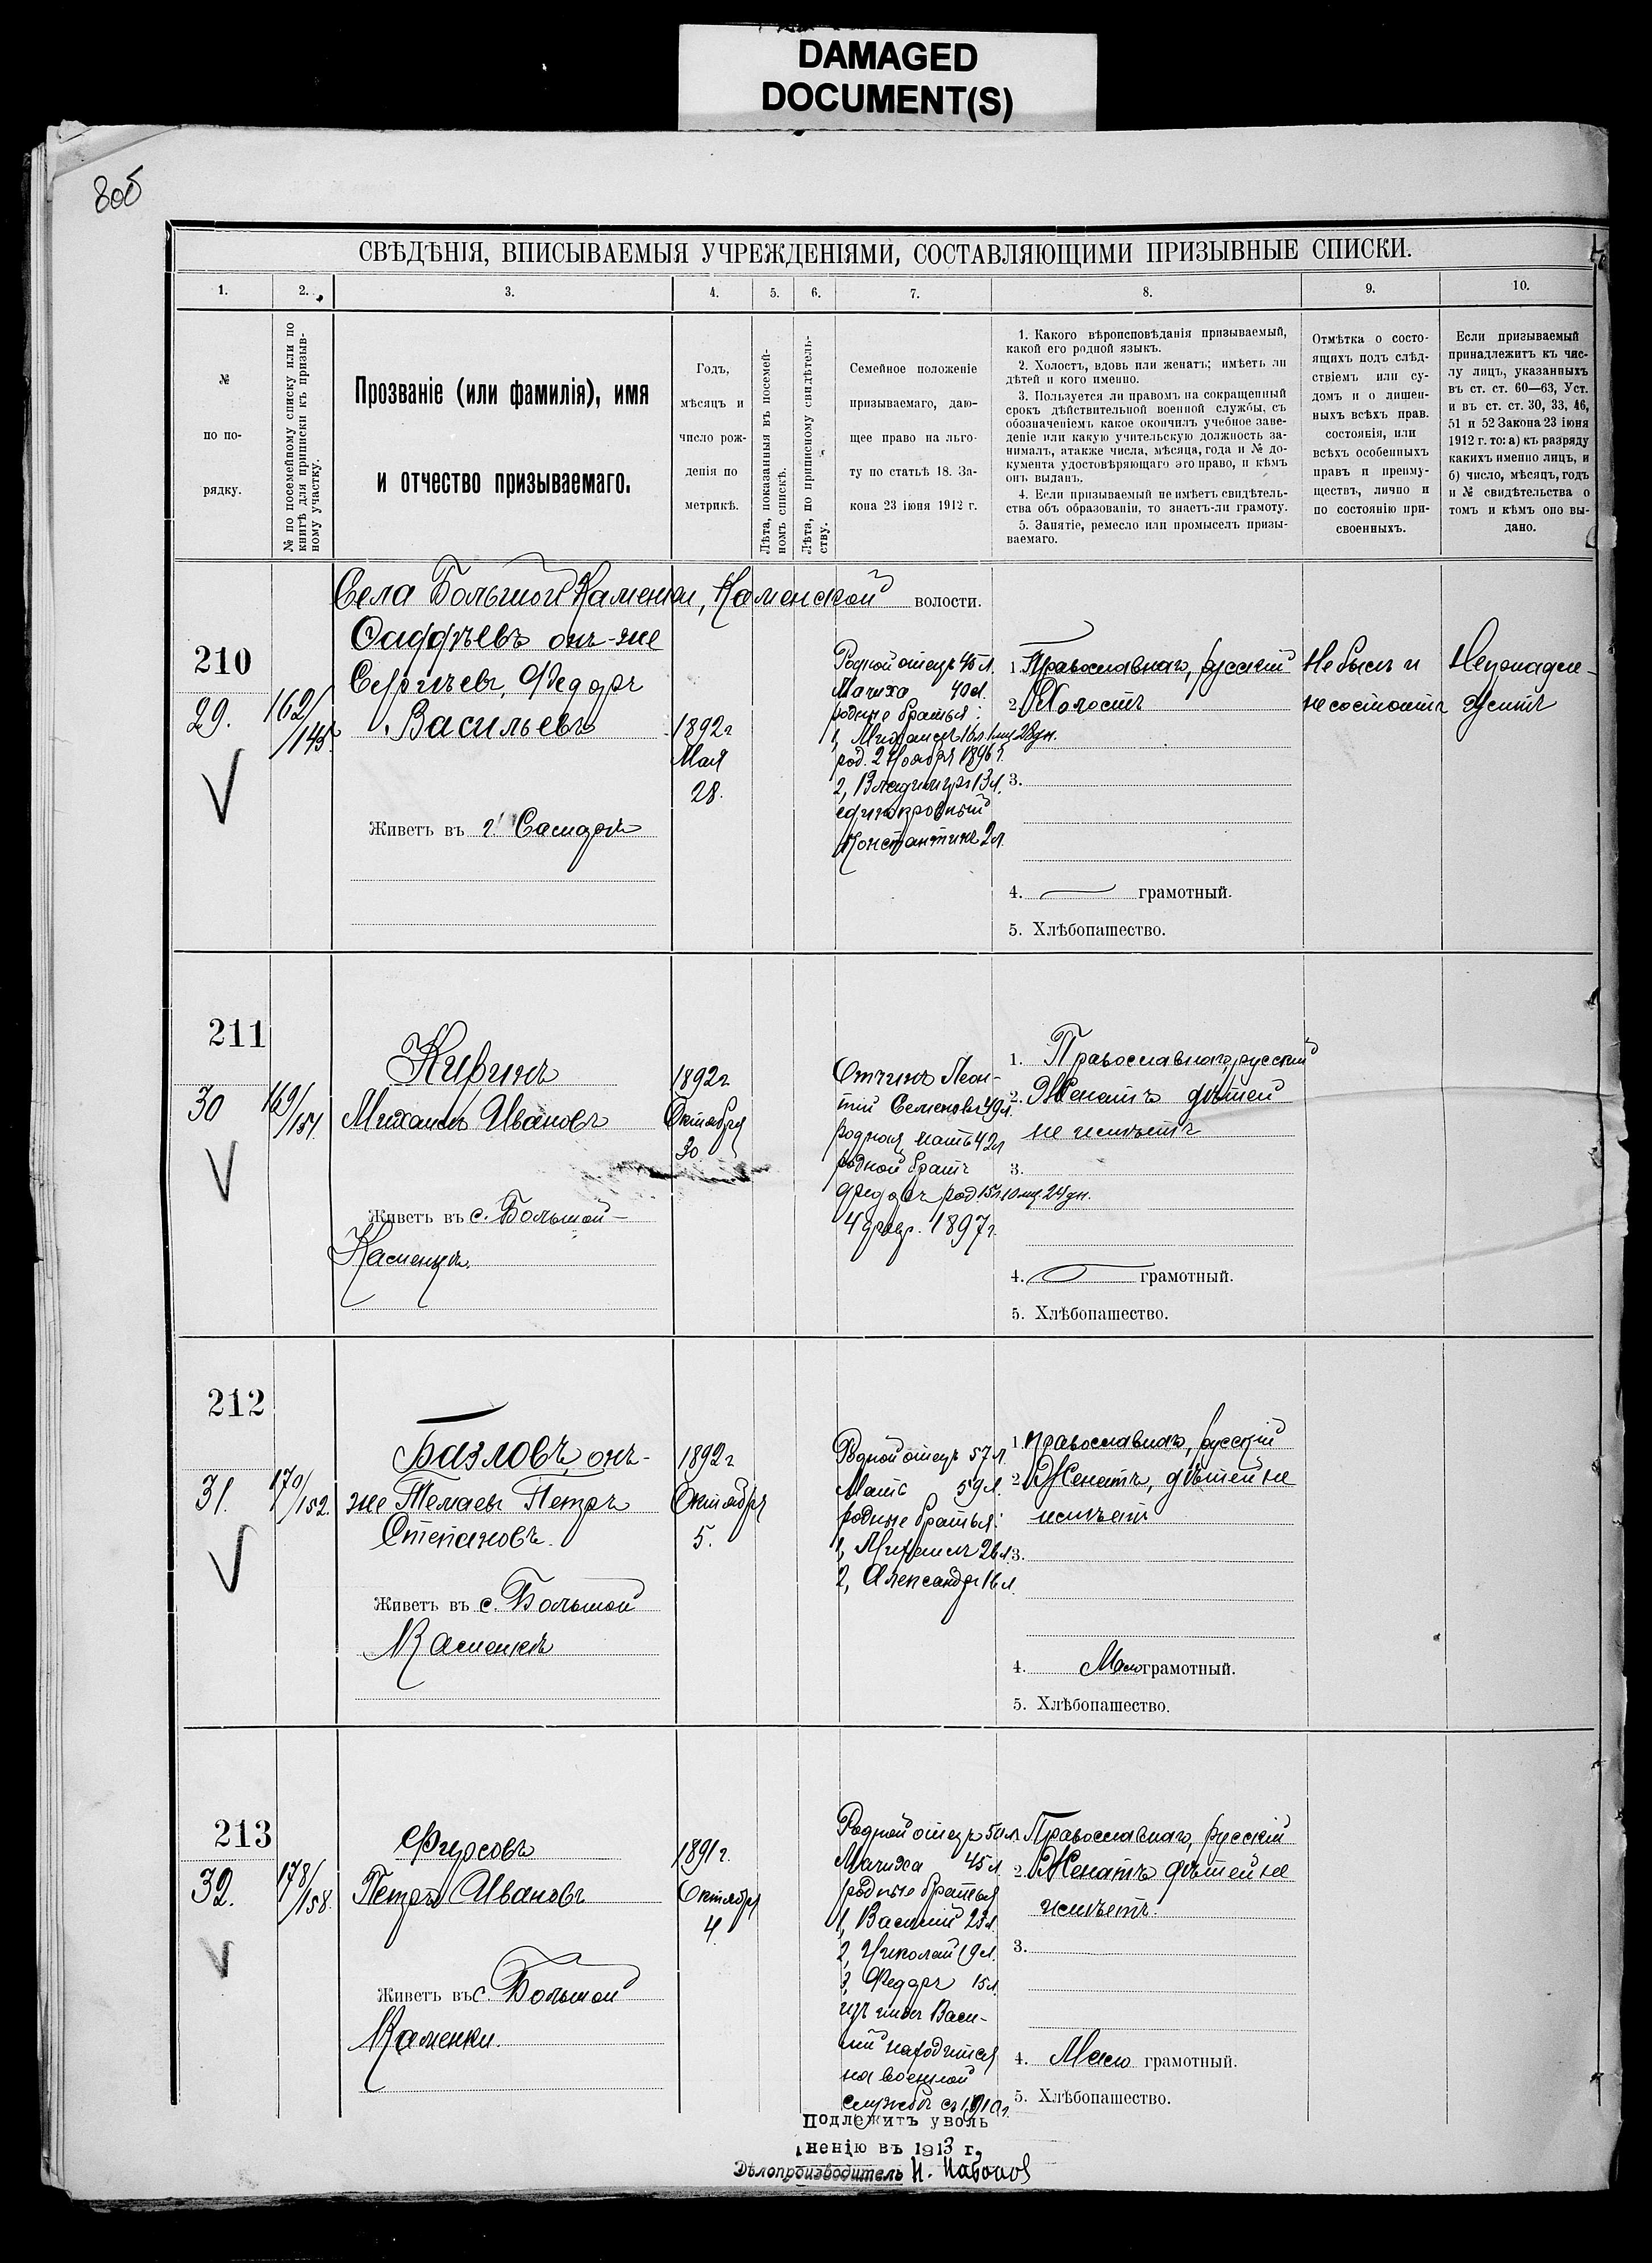 DAMAGED
DOCUMENT(S)
805
СВѢДѢНІЯ, ВПИСЫВАЕМЫЯ УЧРЕЖДЕНІЯМИ, СОСТАВЛЯЮЩИМИ ПРИЗЫВНЫЕ СПИСКИ.
1.
2.
3.
4.
5.
6.
7.
8.
9.
10.
№
по по-
рядку.
№ по посемейному списку или по
книгѣ для приписки къ призыв-
ному участку.
Прозваніе (или фамилія), имя
и отчество призываемаго.
Годъ,
мѣсяцъ и
число рож-
денія по
метрикѣ.
Лѣта, показанныя въ посемей-
номъ спискѣ.
Лѣта, по приписному свидѣтель-
ству.
Семейное положеніе
призываемаго, даю-
щее право на льго-
ту по статьѣ 18. За-
кона 23 іюня 1912 г.
1. Какого вѣроисповѣданія призываемый,
какой его родной языкъ.
2. Холостъ, вдовъ или женатъ; имѣетъ ли
дѣтей и кого именно.
3. Пользуется ли правомъ на сокращенный
срокъ дѣйствительной военной службы, съ
обозначеніемъ какое окончилъ учебное заве-
деніе или какую учительскую должность за-
нималъ, атакже числа, мѣсяца, года и № до-
кумента удостовѣряющаго это право, и кѣмъ
онъ выданъ.
4. Если призываемый не имѣетъ свидѣтель-
ства объ образованіи, то знаетъ-ли грамоту.
5. Занятіе, ремесло или промыселъ призы-
ваемаго.
Отмѣтка о состо-
ящихъ подъ слѣд-
ствіемъ или су-
домъ и о лишен-
ныхъ всѣхъ прав.
состоянія, или
всѣхъ особенныхъ
правъ и преиму-
ществъ, лично и
по состоянію при-
своенныхъ.
Если призываемый
принадлежитъ къ чис-
лу лицъ, указанныхъ
въ ст. ст. 60—63, Уст.
и въ ст. ст. 30, 33, 46,
51 и 52 Закона 23 іюня
1912 г. то: а) къ разряду
какихъ именно лицъ, и
б) число, мѣсяцъ, годъ
и № свидѣтельства о
томъ и кѣмъ оно вы-
дано.
Села Большой Каменки, Каменской волости.
210
29.
162/145
онъ-же
Сергѣевъ, Федоръ
Васильевъ
Живетъ въ г. Самарѣ
1892 г
Мая
28.
Родной отецъ 45 л.
Мачиха 40 л.
родные братья:
1, Михаилъ 16 л 1 мц 28 дн.
род. 2 Ноября 1896 г.
2, Владимиръ 13 л.
единокровный
Константинъ 2 л.
1. Православнаго, русскій
2. Холостъ
3.
4. грамотный.
5. Хлѣбопашество.
Не былъ и
не состоитъ
Непринадле-
житъ
211
30
169/151.
Киринъ
Михаилъ Ивановъ
Живетъ въ с. Большой-
Каменкѣ.
1892 г
Октября
30
Отчимъ Леон-
тій Семеновъ 49 л.
родная мать 42 л
родной братъ
Федоръ род. 15 л 10 мц. 24 дн.
4 февр. 1897 г.
1. Православнаго, русскій
2. Женатъ дѣтей
не имѣетъ
3.
4. грамотный.
5. Хлѣбопашество.
212
31.
170/152.
Базловъ, онъ-
же Телаевъ Петръ
Степановъ.
Живетъ въ с. Большой
Каменкѣ
1892 г
Октября
5.
Родной отецъ 57 л.
Мать 59 л.
родные братья:
1, Михаилъ 26 л
2, Александръ 16 л.
1. Православнаго, русскій
2. Женатъ, дѣтей не
имѣетъ
3.
4. Малограмотный.
5. Хлѣбопашество.
213
32.
178/158.
Фурсовъ
Петръ Ивановъ
Живетъ въ с. Большой
Каменки.
1891 г.
Октября
4
Родной отецъ 50 л.
Мачиха 45 л.
родные братья
1, Василій 23 л.
2, Николай 19 л.
3, Федоръ 15 л.
изъ нихъ Васи-
лій находится
на военной
службѣ съ 1910 г.
Православнаго, русскій
2. Женатъ дѣтей не
имѣетъ.
3.
4. Мало грамотный.
5. Хлѣбопашество.
Подлежитъ уволь
ненію въ 1913 г.
Дѣлопроизводитель